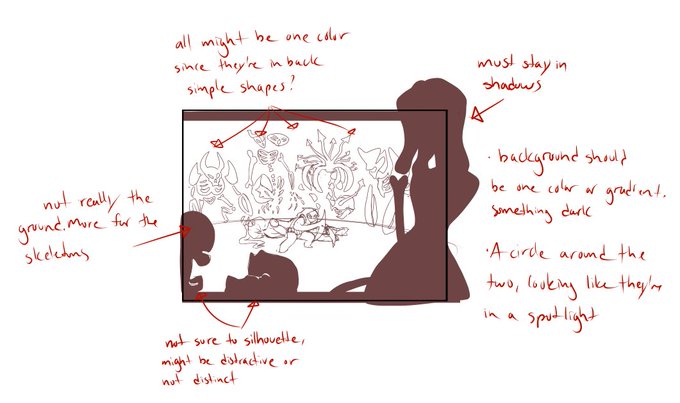 all might be one color
since they're in back
simple shapes?
must stay in
shadows
• background should
be one color or gradient.
something dark
• A circle around the
two, looking like they're
in a spotlight
not really the
ground. More for the
skeletons
not sure to silhouette,
might be distractive or
not distinct